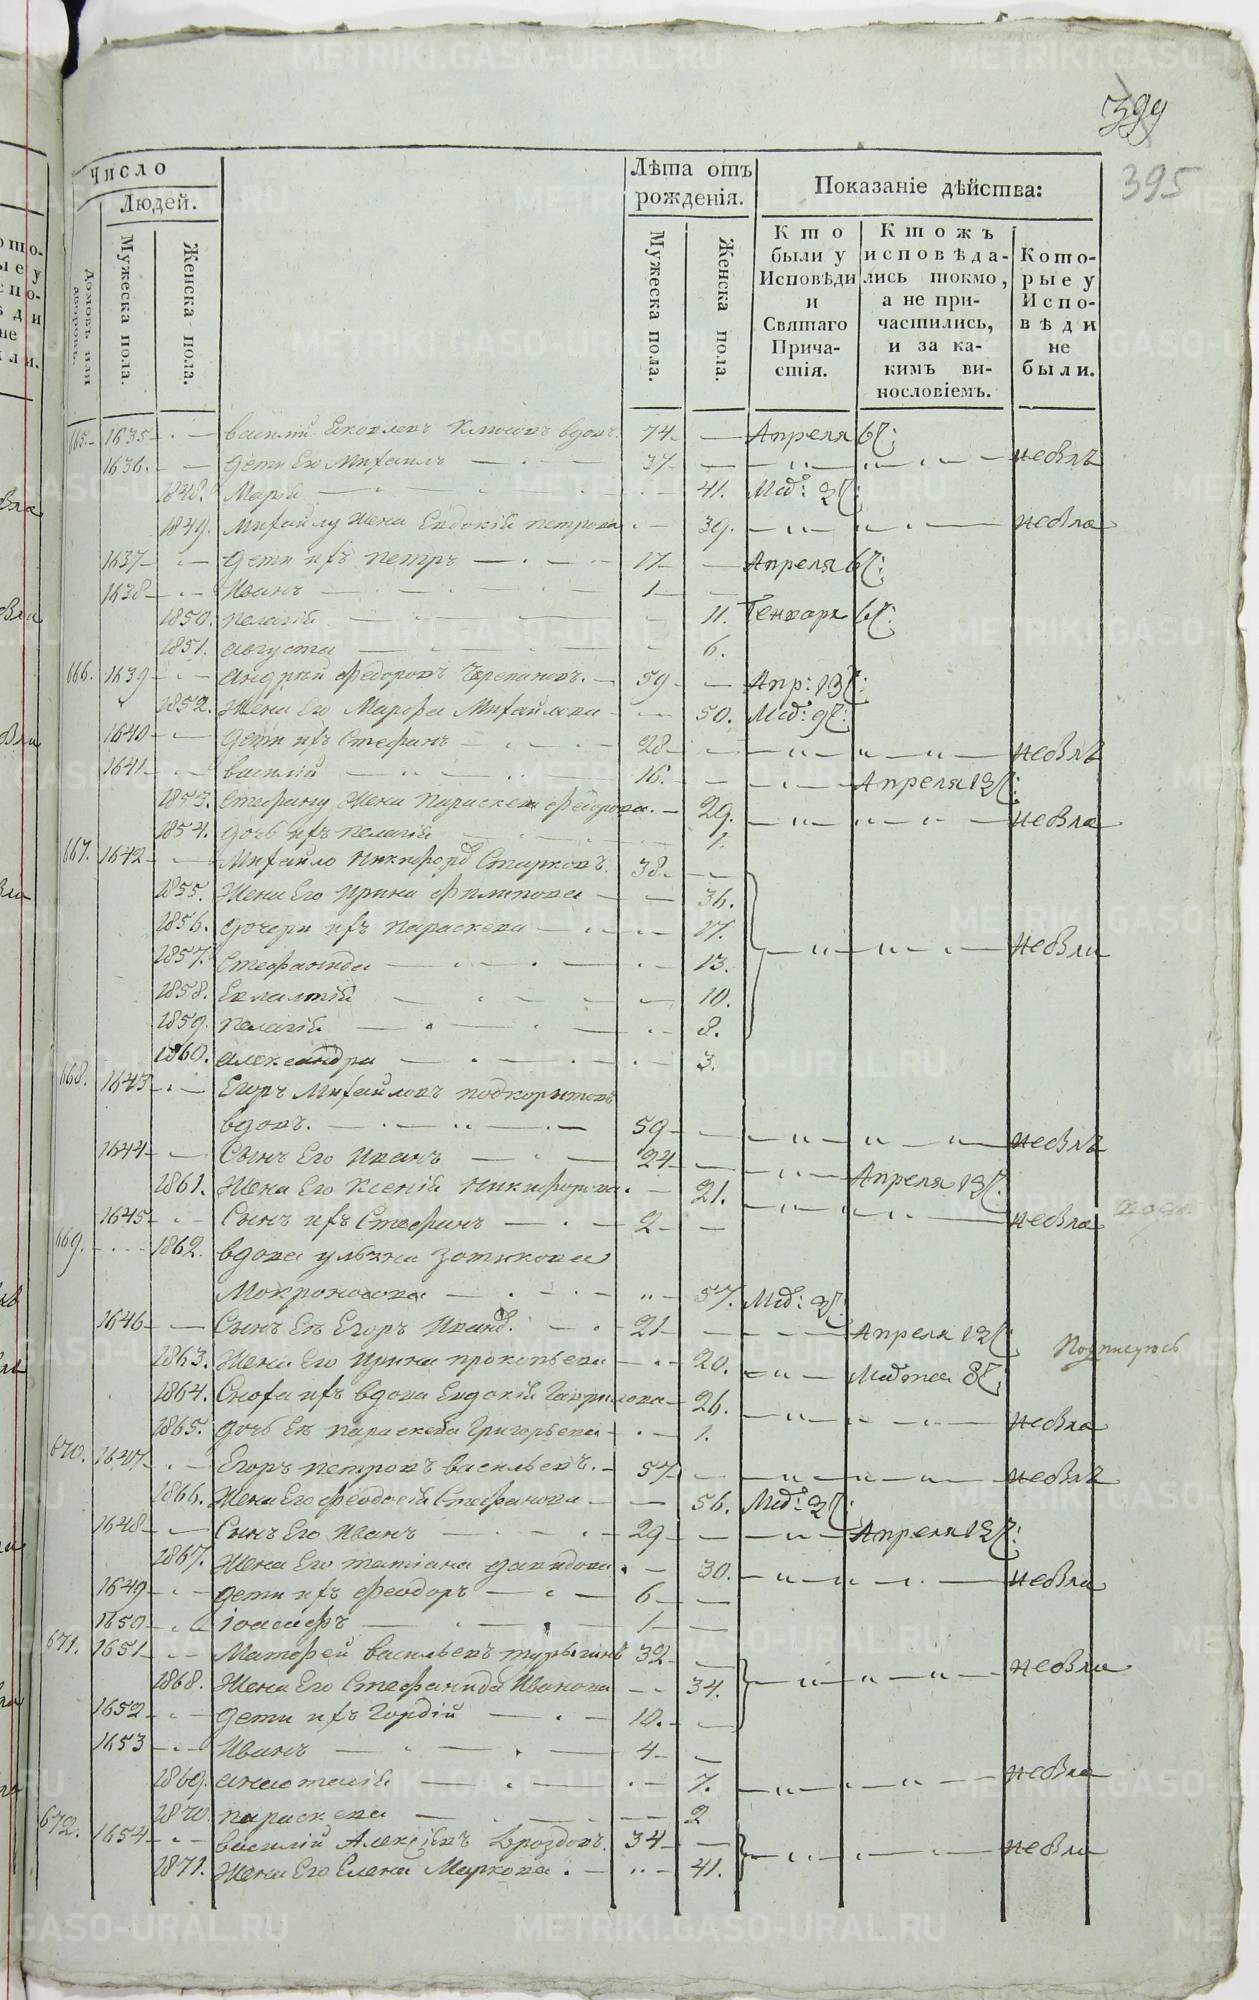 399
395
Число
Людей.
Домовъ или дворовъ.
Мужеска пола.
Женска пола.
Лѣта отъ рожденія.
Мужеска пола.
Женска пола.
Показаніе дѣйства:
Кто были у Исповѣди и Святаго Причастія.
Ктожъ исповѣдались токмо, а не причастились, и за какимъ винословіемъ.
Которые у Исповѣди не были.
665. 1635 Василій Яковлевъ Клюсовъ вдовъ. 74 Апреля 6
1636. Дети Ево Михаилъ 37 небылъ
1848. Марѳа 41.
1849. Михайлу жена Евдокія Петрова 39. небыла
1637 Дети ихъ Петръ 17 Апреля 6
1638 Иванъ 1
1850. Пелагія 11. Генваря 6
1851. Августа 6.
666. 1639 Андрей Федоровъ Черепановъ. 59 Апр: 13
1852. Жена Его Марфа Михайлова 50.
1640 Дети ихъ Стефанъ 28 небылъ
1641 Василій 16. Апреля 13
1853. Стефану жена Параскева Федорова. 29. небыла
1854. Дочь ихъ Пелагія 1.
667. 1642 Михайло Никифоровъ Старковъ. 38.
1855. Жена Его Ирина Филипова 36.
1856. Дочери ихъ Параскева 17.
1857. Стефанида 13. небыли
1858. 10.
1859. Пелагія 8.
1860. Александра 3.
668. 1643 Егоръ Михайловъ Подкорытовъ
вдовъ. 59 небылъ
1644 Сынъ Его Иванъ 24 Апреля 13
1861. Жена Его Ксенія Никифорова. 21. небыла
1645 Сынъ ихъ Стефанъ 2
669. 1862. Вдова Ульяна Зотикова
Мокроносова 57.
1646 Сынъ Ея Егоръ Ивановъ. 21 Апреля 12
1863. Жена Его Ирина Прокопьева 20. Марта 8
1864. Сноха ихъ вдова Евдокія Гаврилова 26. небыла
1865. Дочь Ея Параскева Григорьева 1.
670. 1647 Егоръ Петровъ Васильевъ. 57 небылъ
1866. Жена Его Феодосія Стефанова 56.
1648 Сынъ Его Иванъ 29 Апреля 13
1867. Жена Его Татіана Давидова. 30. небыла
1649 Дети ихъ Феодоръ 6
1650 Іоасафъ 1
671. 1651 Матфей Васильевъ Турыгинъ 32
1868. Жена Его Стефанида Иванова 34. небыли
1652 Дети ихъ Гордій 10.
1653 Иванъ 4
1869. Анастасія 7. небыла
1870. Параскева 2
672. 1654 Василій Алексіевъ Дроздовъ. 34 небыли
1871. Жена Его Елена Маркова. 41.
METRIKI.GASO-URAL.RU